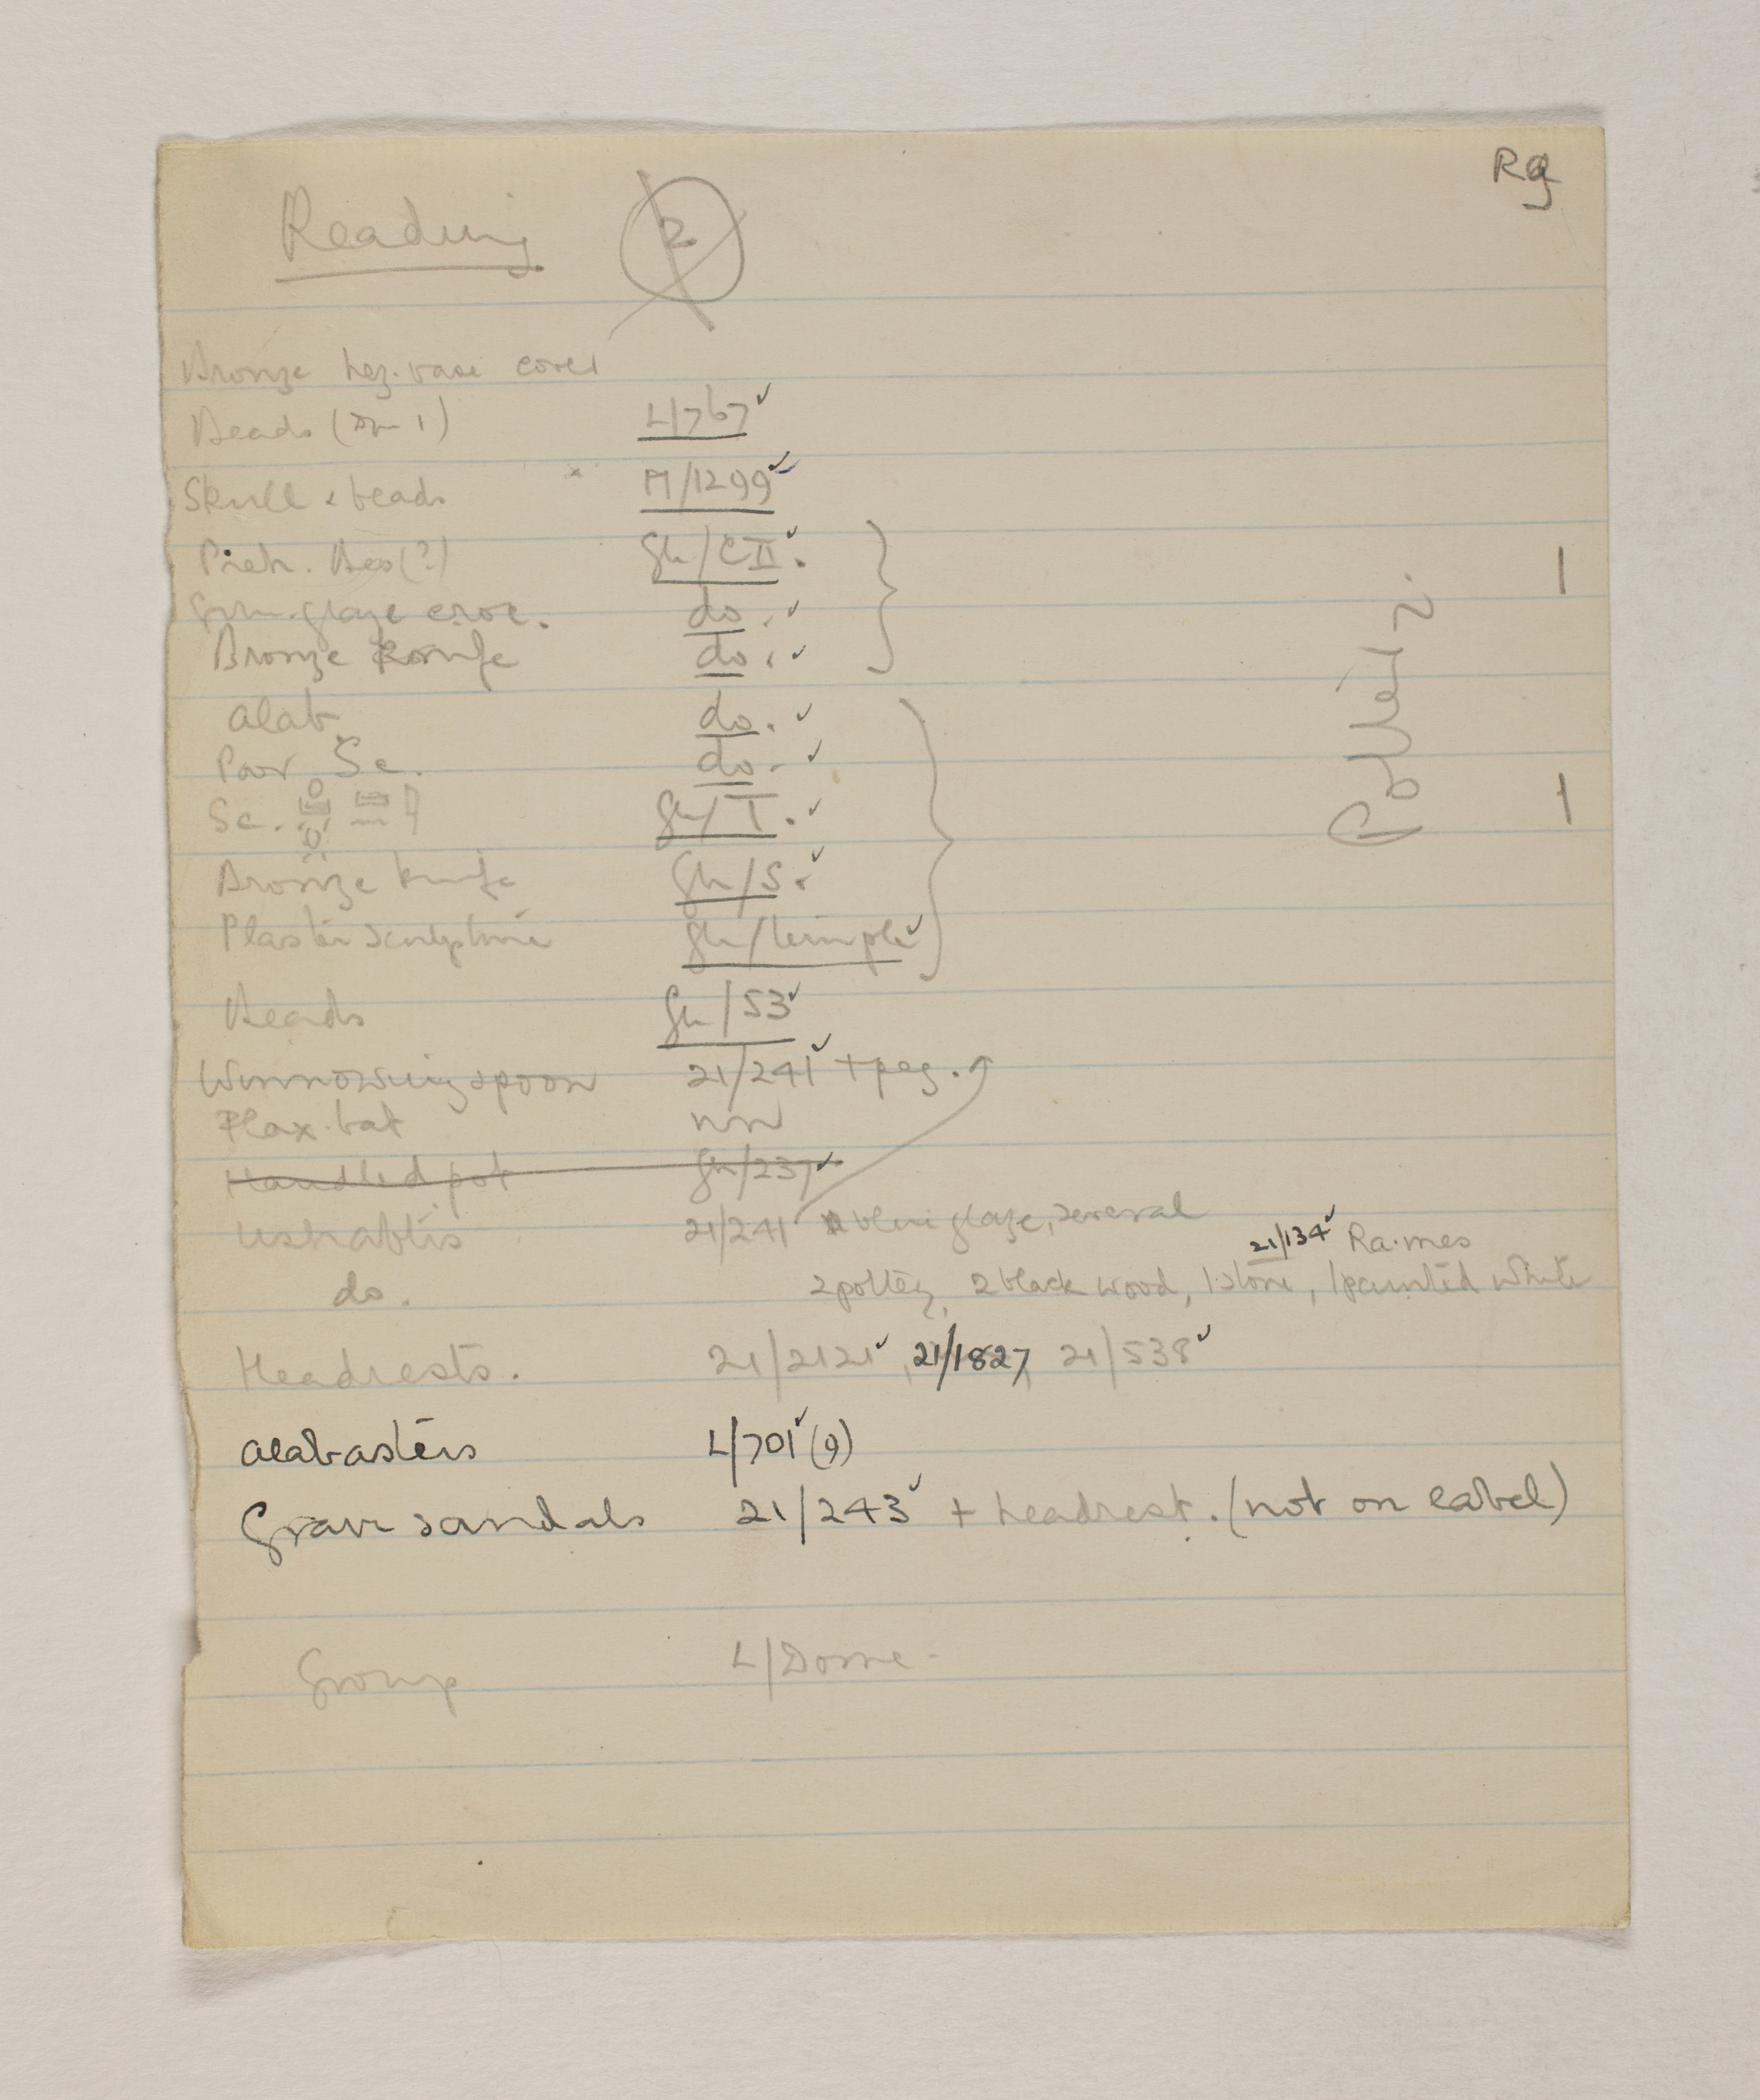 Rg
Reading 2
Bronze hez. vase cover
Beads (Dyn 1) L/767 ✓
Skull & beads M/1299 ✓
Bes (?) Gu/CII. ✓
glaze do. ✓
Bronze knife do. ✓
alab. do. ✓
Pour Sc. do. ✓
Sc. Gu/T. ✓
Bronze knife Gu/S. ✓
Plaster sculpture Gu/temple ✓
Beads Gu/53 ✓
Winnowing spoon 21/241 ✓ + peg.
Flax. bat nn
Handled pot Gu/237 ✓
Ushabtis 21/241 blue glaze, several
21/134 ✓ Ra.mes
do. 2 pottery, 2 black wood, 1 stone, 1 painted white
Headrests. 21/2121 ✓, 21/1827, 21/538 ✓
alabasters L/701 ✓ (9)
Grave sandals 21/243 ✓ + headrest. (not on label)
Group L/Dome -
1
1